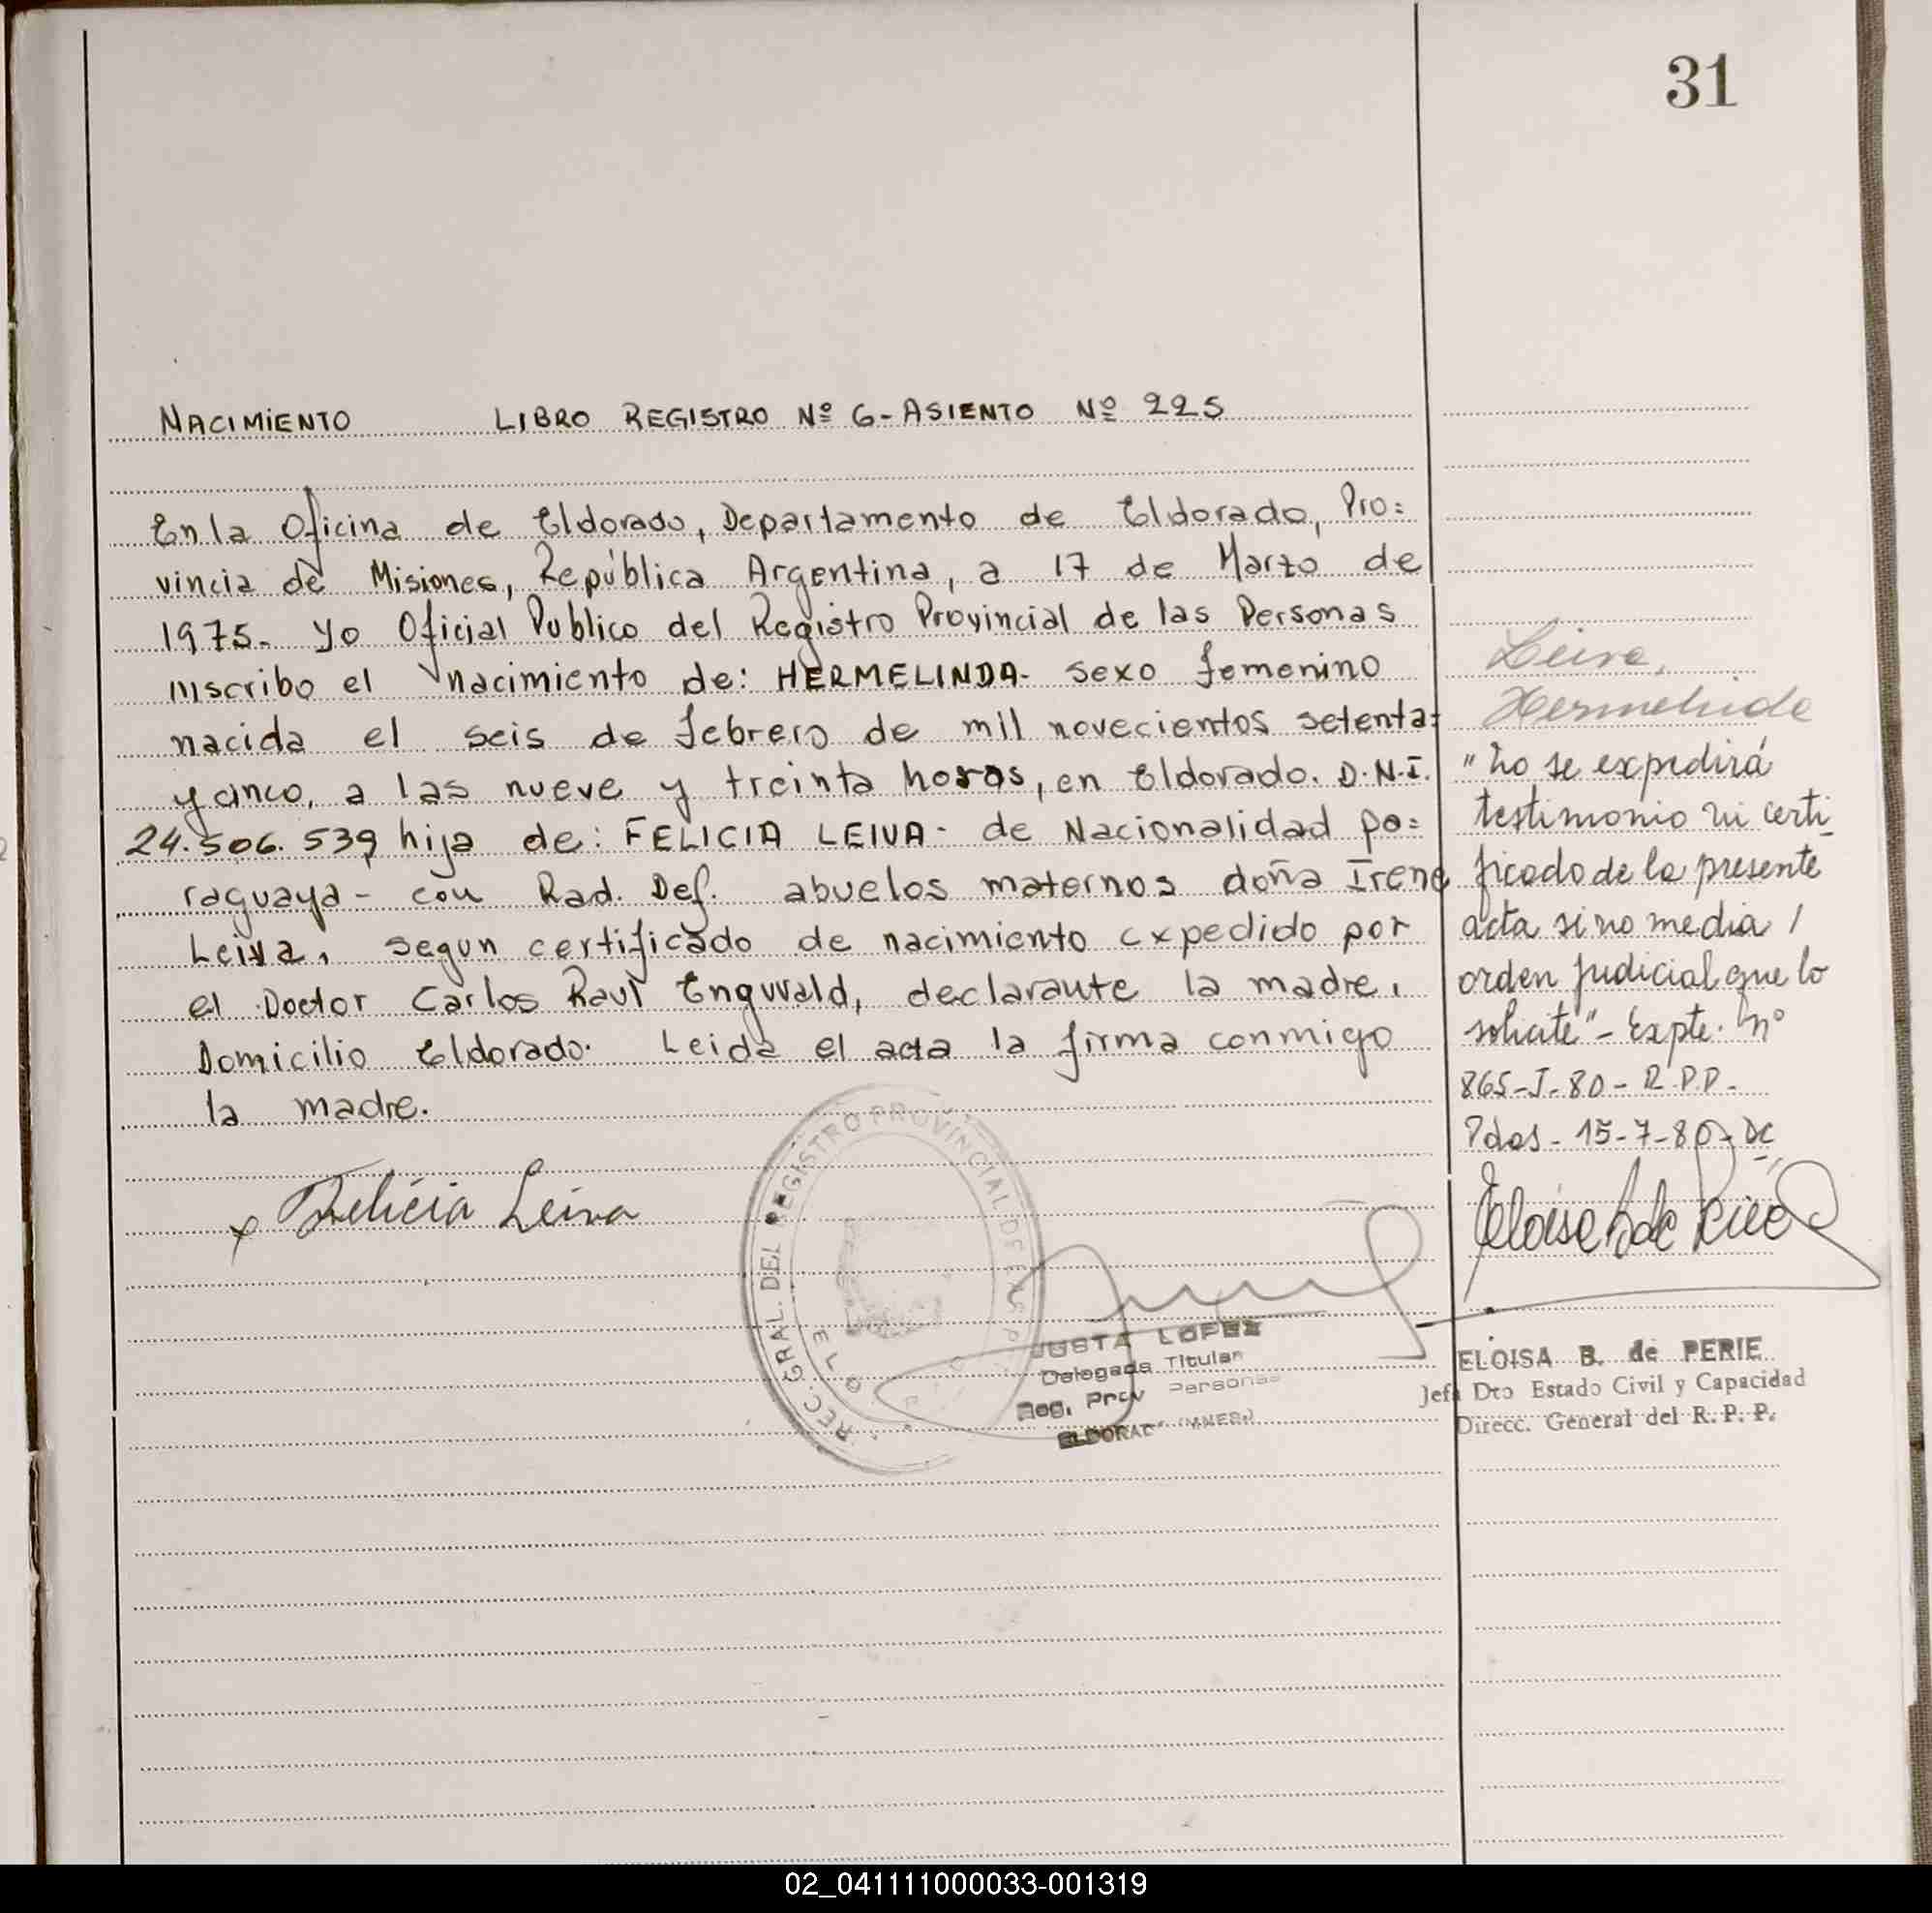 31
NACIMIENTO LIBRO REGISTRO Nº 6 - ASIENTO Nº 225
En la Oficina de Eldorado, Departamento de Eldorado, Pro=
vincia de Misiones, República Argentina, a 17 de Marzo de
1975. Yo Oficial Publico del Registro Provincial de las Personas
inscribo el nacimiento de: HERMELINDA- sexo femenino
nacida el seis de febrero de mil novecientos setenta=
y cinco, a las nueve y treinta horas, en Eldorado. D.N.I.
24.506.539 hija de: FELICIA LEIVA- de Nacionalidad pa=
raguaya - con Rad. Def. abuelos maternos doña Irene
Leiva, segun certificado de nacimiento expedido por
el Doctor Carlos Raul Enguvald, declarante la madre,
Domicilio Eldorado. Leida el acta la firma conmigo
la madre.
x Felicia Leiva
REC. GRAL. DEL REGISTRO PROVINCIAL DE
JUSTA LOPEZ
Delegada Titular
Reg. Prov Personas
ELDORADO (MNES.)
Leiva,
Hermelinda
"No se expedirá
testimonio ni certi_
ficado de la presente
acta si no media /
orden judicial que lo
solicite"- Expte. Nº
865-J-80- R.P.P.-
Pdas- 15-7-80- DC
ELOISA B. de PERIE
Jefa Dto Estado Civil y Capacidad
Direcc. General del R. P. P.
02_041111000033-001319